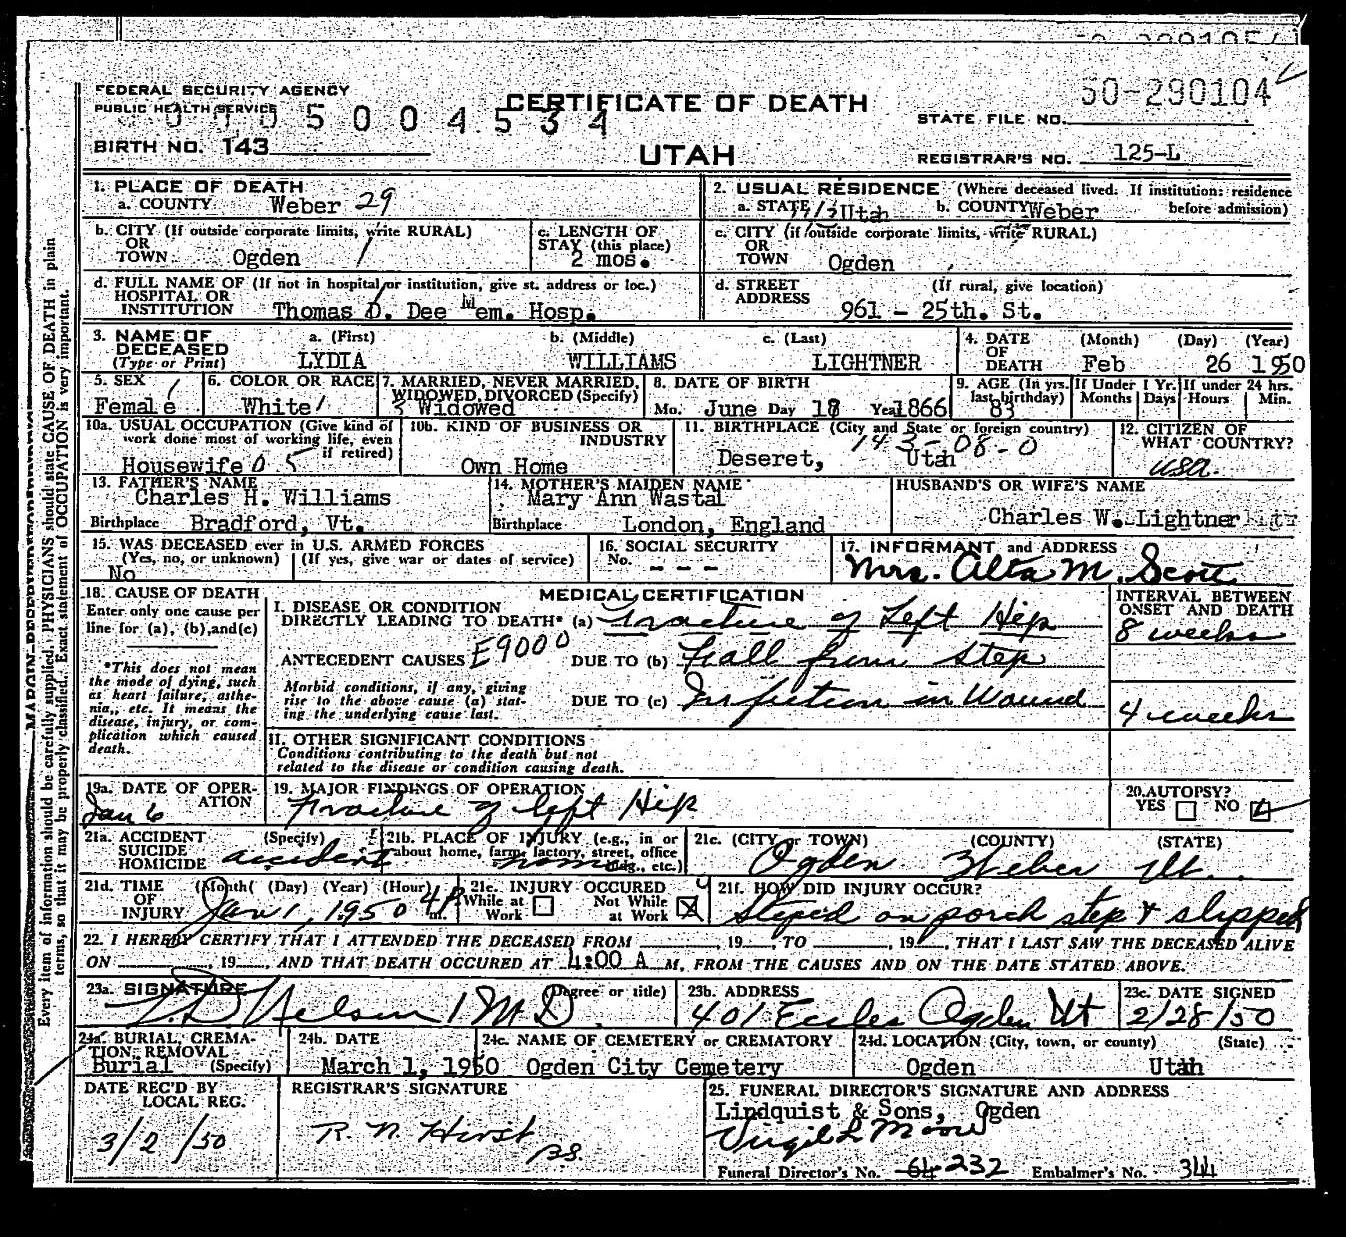 50-290104
FEDERAL SECURITY AGENCY
PUBLIC HEALTH SERVICE
CERTIFICATE OF DEATH
5004534
STATE FILE NO.
BIRTH NO. 143
UTAH
REGISTRAR'S NO. 125-L
1. PLACE OF DEATH
a. COUNTY Weber 29
2. USUAL RESIDENCE (Where deceased lived. If institution: residence before admission)
a. STATE Utah b. COUNTY Weber
b. CITY (If outside corporate limits, write RURAL)
OR
TOWN Ogden
c. LENGTH OF
STAY (this place)
2 mos.
c. CITY (if outside corporate limits, write RURAL)
OR
TOWN Ogden
d. FULL NAME OF (If not in hospital or institution, give st. address or loc.)
HOSPITAL OR
INSTITUTION Thomas D. Dee Mem. Hosp.
d. STREET (If rural, give location)
ADDRESS 961 - 25th. St.
3. NAME OF
DECEASED
(Type or Print)
a. (First) b. (Middle) c. (Last)
LYDIA WILLIAMS LIGHTNER
4. DATE (Month) (Day) (Year)
OF
DEATH Feb 26 1950
5. SEX
Female
6. COLOR OR RACE
White
7. MARRIED, NEVER MARRIED,
WIDOWED, DIVORCED (Specify)
Widowed
8. DATE OF BIRTH
Mo. June Day 18 Year 1866
9. AGE (In yrs. last birthday)
83
If Under 1 Yr.
Months Days
If under 24 hrs.
Hours Min.
10a. USUAL OCCUPATION (Give kind of
work done most of working life, even
if retired)
Housewife 0 5
10b. KIND OF BUSINESS OR
INDUSTRY
Own Home
11. BIRTHPLACE (City and State or foreign country)
143-08-0
Deseret, Utah
12. CITIZEN OF
WHAT COUNTRY?
USA.
13. FATHER'S NAME
Charles H. Williams
Birthplace Bradford, Vt.
14. MOTHER'S MAIDEN NAME
Mary Ann Wastal
Birthplace London, England
HUSBAND'S OR WIFE'S NAME
Charles W. Lightner
15. WAS DECEASED ever in U.S. ARMED FORCES
(Yes, no, or unknown) (If yes, give war or dates of service)
No
16. SOCIAL SECURITY
No. - - -
17. INFORMANT and ADDRESS
Mrs. Alta M. Scott
18. CAUSE OF DEATH
Enter only one cause per
line for (a), (b), and (c)
*This does not mean
the mode of dying, such
as heart failure, asthe-
nia, etc. It means the
disease, injury, or com-
plication which caused
death.
MEDICAL CERTIFICATION
INTERVAL BETWEEN
ONSET AND DEATH
I. DISEASE OR CONDITION
DIRECTLY LEADING TO DEATH* (a) Fracture of Left Hip
8 weeks
ANTECEDENT CAUSES E9000 DUE TO (b) Fall from step
Morbid conditions, if any, giving
rise to the above cause (a) stat-
ing the underlying cause last.
DUE TO (c) Infection in Wound
4 weeks
II. OTHER SIGNIFICANT CONDITIONS
Conditions contributing to the death but not
related to the disease or condition causing death.
19a. DATE OF OPER-
ATION
Jan 6
19. MAJOR FINDINGS OF OPERATION
Fracture of left Hip
20. AUTOPSY?
YES NO
21a. ACCIDENT (Specify)
SUICIDE
HOMICIDE accident
21b. PLACE OF INJURY (e.g., in or
about home, farm, factory, street, office
bldg., etc.)
21c. (CITY or TOWN) (COUNTY) (STATE)
Ogden Weber Ut.
21d. TIME (Month) (Day) (Year) (Hour)
OF
INJURY Jan 1, 1950 4P m.
21e. INJURY OCCURED
While at Work Not While at Work
21f. HOW DID INJURY OCCUR?
Steped on porch step & slipped
22. I HEREBY CERTIFY THAT I ATTENDED THE DECEASED FROM , 19 , TO , 19 , THAT I LAST SAW THE DECEASED ALIVE
ON , 19 , AND THAT DEATH OCCURED AT 4:00 A M, FROM THE CAUSES AND ON THE DATE STATED ABOVE.
23a. SIGNATURE (Degree or title)
Nelson MD.
23b. ADDRESS
401 Eccles Ogden Ut
23c. DATE SIGNED
2/28/50
24a. BURIAL, CREMA-
TION, REMOVAL
Burial (Specify)
24b. DATE
March 1, 1950
24c. NAME OF CEMETERY or CREMATORY
Ogden City Cemetery
24d. LOCATION (City, town, or county) (State)
Ogden Utah
DATE REC'D BY
LOCAL REG.
3/2/50
REGISTRAR'S SIGNATURE
R. N. Hirst
25. FUNERAL DIRECTOR'S SIGNATURE AND ADDRESS
Lindquist & Sons, Ogden
Virgil L Moore
Funeral Director's No. 64 232 Embalmer's No. 344
Every item of information should be carefully supplied. PHYSICIANS should state CAUSE OF DEATH in plain
terms, so that it may be properly classified. Exact statement of OCCUPATION is very important.